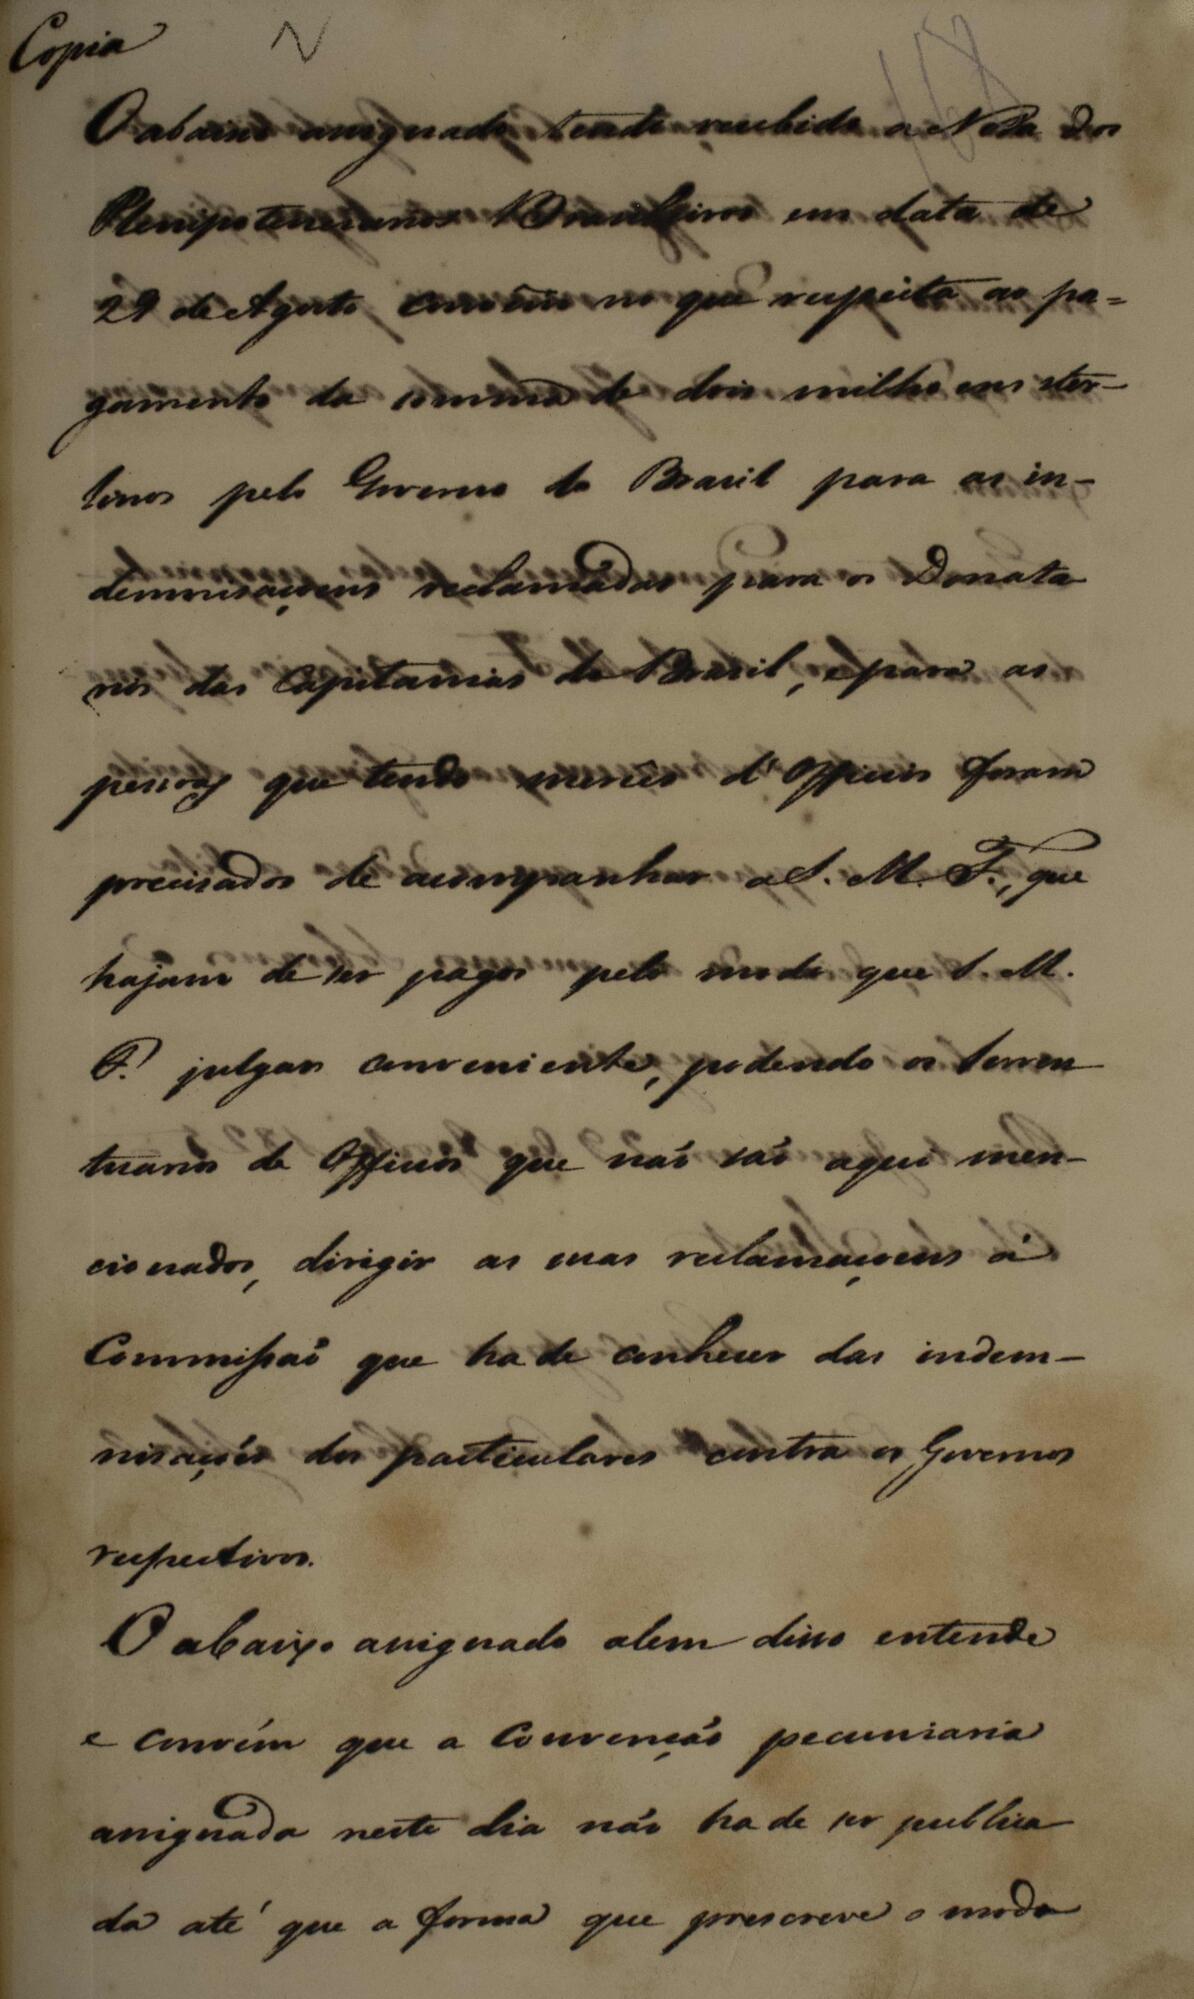 Copia N 168
O abaixo assignado tendo recebido a Nota dos
Plenipotenciarios Brasileiros em data de
29 de Agosto convêm no que respeita ao pa=
gamento da somma de dois milhoens ster-
linos pelo Governo do Brasil para as in-
demnisaçoens reclamadas para os Donata
rios das Capitanias do Brasil, e para as
pessoas que tendo mercês d'Officios foram
precisados de acompanhar a S. M. F., que
hajam de ser pagos pelo modo que S. M.
F. julgar conveniente, podendo os serven
tuarios de Officios que não são aqui men-
cionados, dirigir as suas reclamaçoens á
Commissão que hade conhecer das indem-
nisações dos particulares contra os Governos
respectivos.
O abaixo assignado alem disso entende
e convém que a Convenção pecuniaria
assignada neste dia não hade ser publica
da até que a forma que prescreve o modo